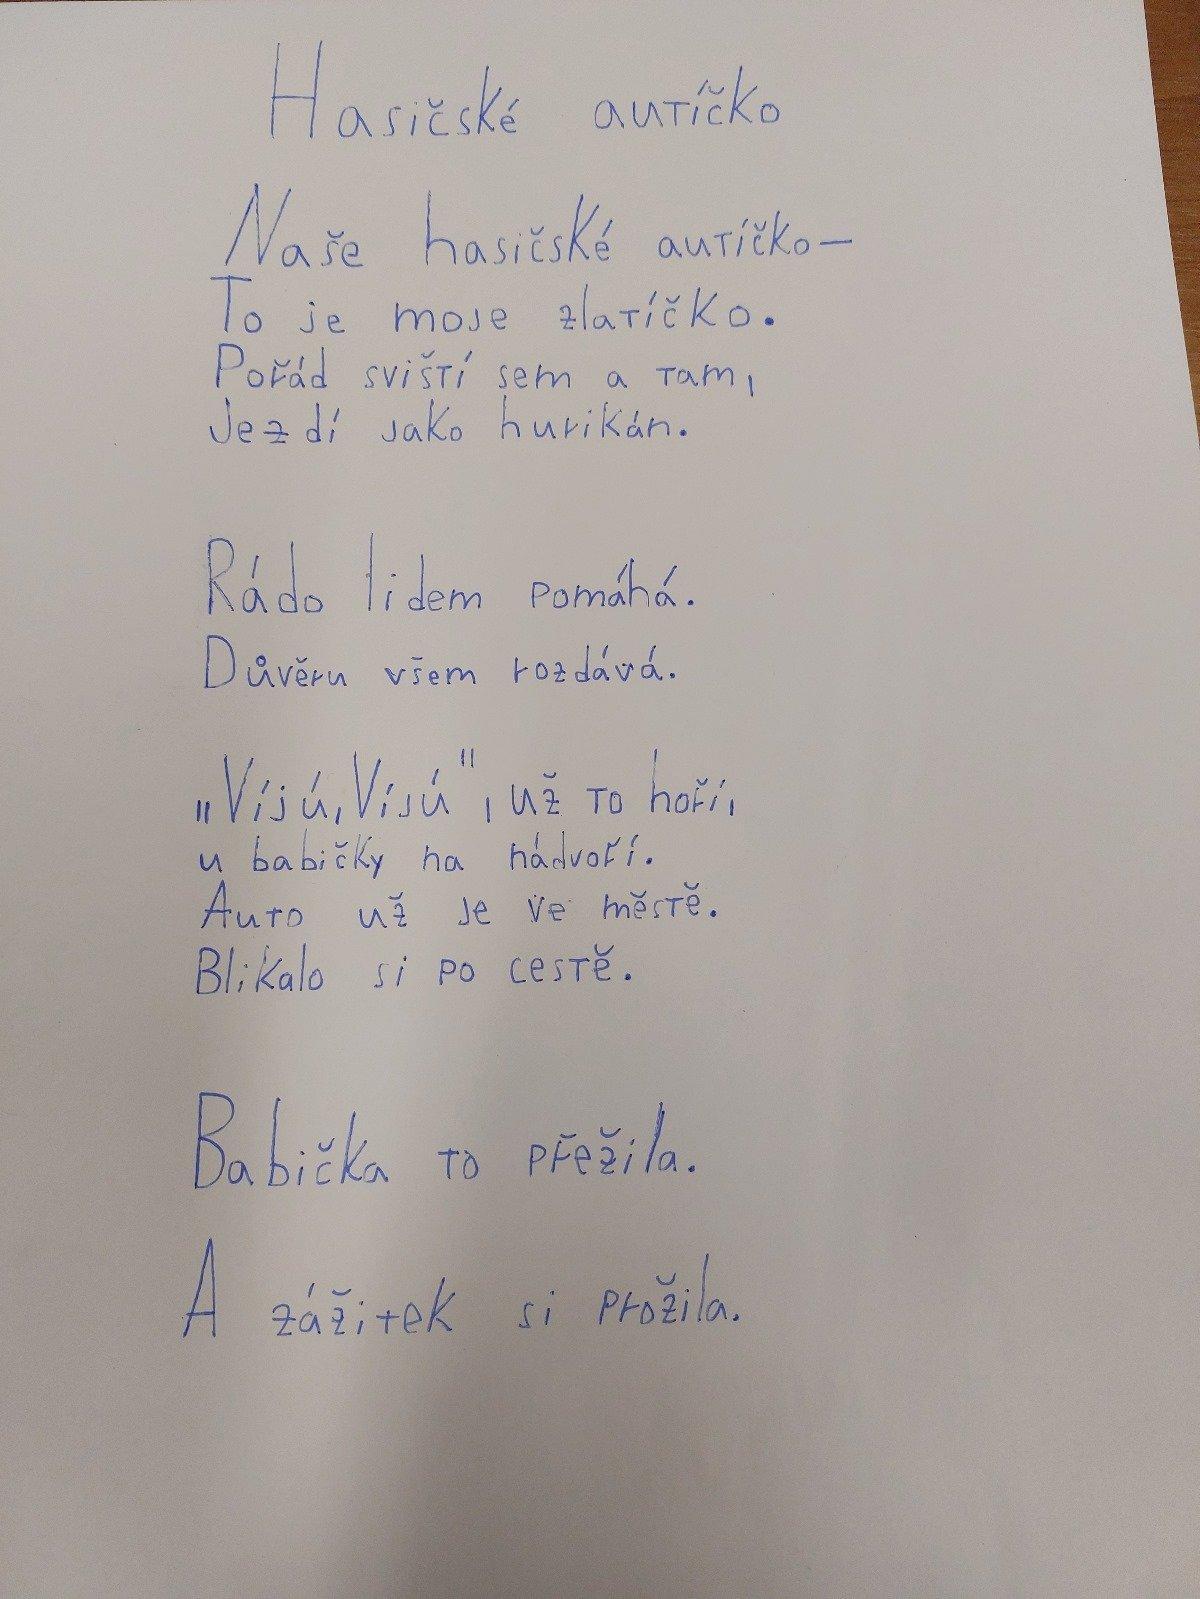 Hasičské autíčko
Naše hasičské autíčko–
To je moje zlatíčko.
Pořád sviští sem a tam,
Jezdí jako hurikán.
Rádo lidem pomáhá.
Důvěru všem rozdává.
„Víjú, Víjú", už to hoří,
u babičky na nádvoří.
Auto už je ve městě.
Blikalo si po cestě.
Babička to přežila.
A zážitek si prožila.